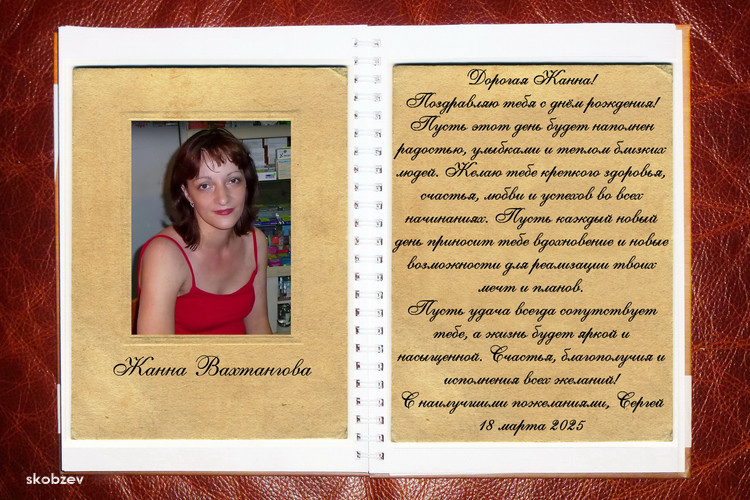 Жанна Вахтангова
Дорогая Жанна!
Поздравляю тебя с днём рождения!
Пусть этот день будет наполнен
радостью, улыбками и теплом близких
людей. Желаю тебе крепкого здоровья,
счастья, любви и успехов во всех
начинаниях. Пусть каждый новый
день приносит тебе вдохновение и новые
возможности для реализации твоих
мечт и планов.
Пусть удача всегда сопутствует
тебе, а жизнь будет яркой и
насыщенной. Счастья, благополучия и
исполнения всех желаний!
С наилучшими пожеланиями, Сергей
18 марта 2025
skobzev